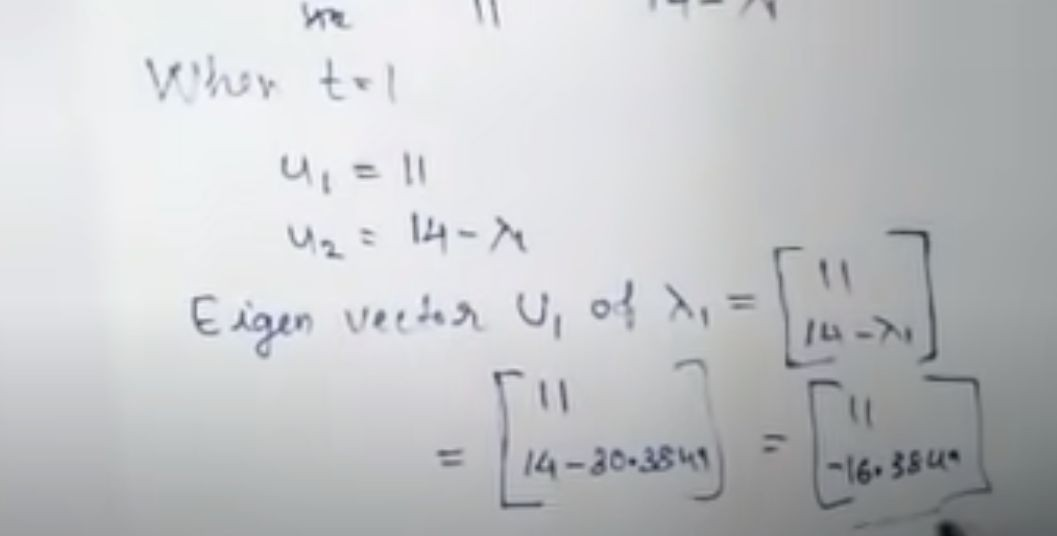 11 14-λ
When t=1
u₁ = 11
u₂ = 14-λ₁
Eigen vector U₁ of λ₁ = [11 14-λ₁]
= [11 14-30.3849] = [11 -16.3849]